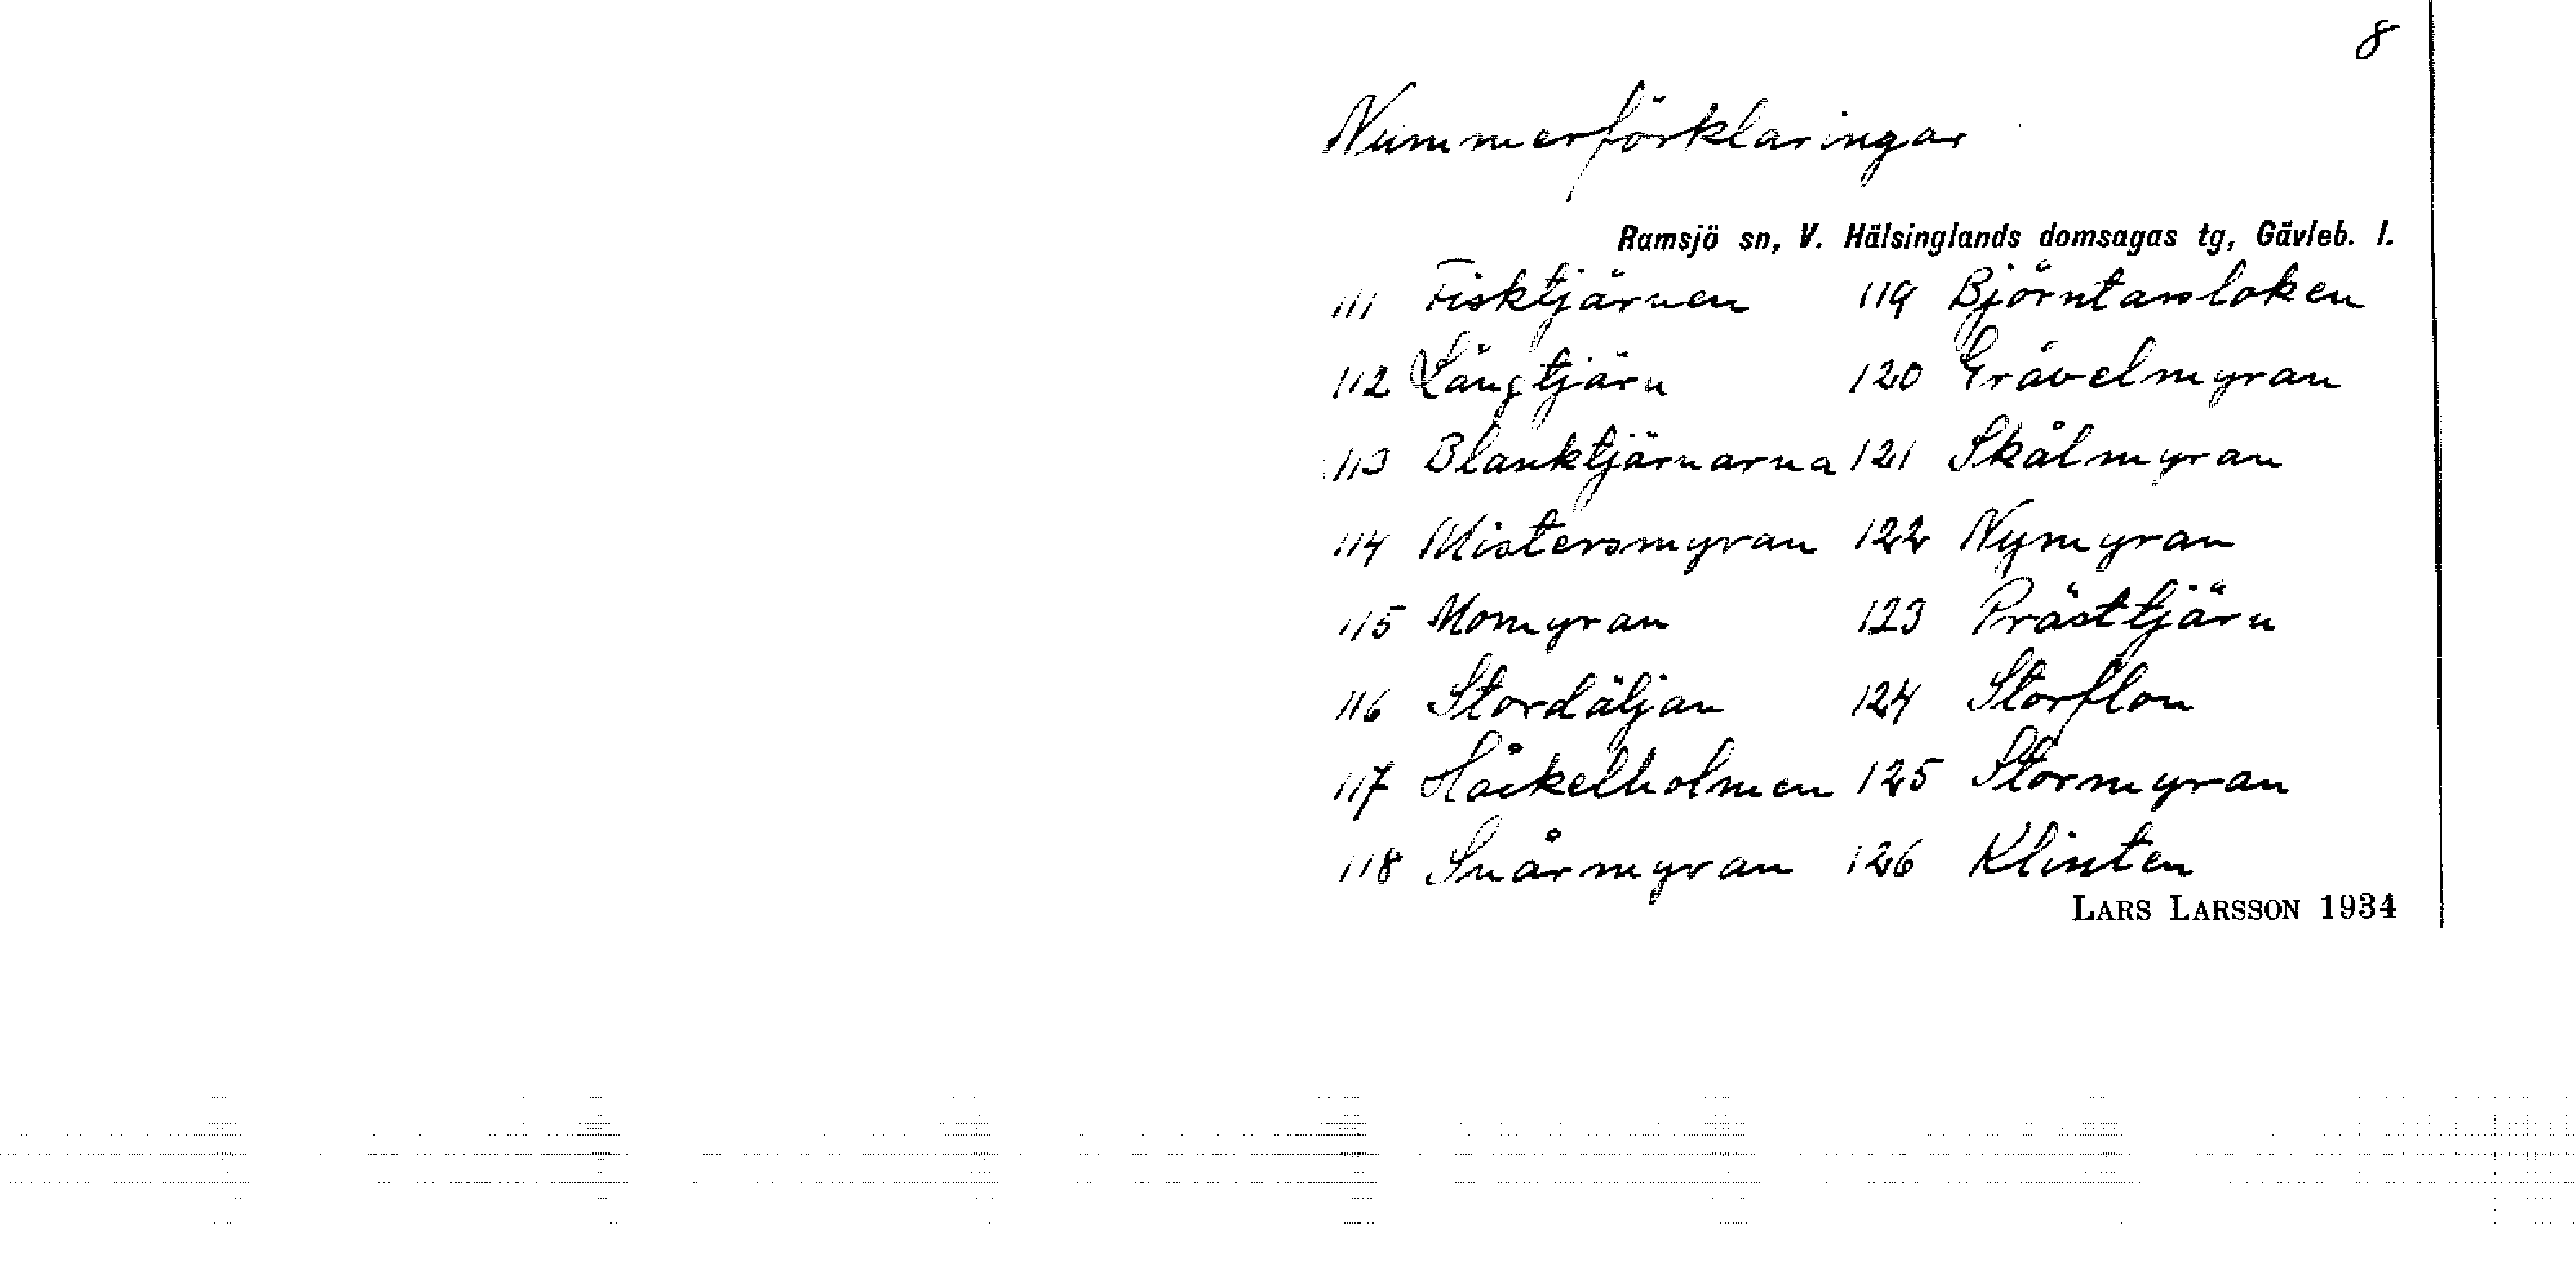 8
Nummerförklaringar
Ramsjö sn, V. Hälsinglands domsagas tg, Gävleb. l.
111 Fisktjärnen 119 Björntassloken
112 Långtjärn 120 Grävelmyran
113 Blanktjärnarna 121 Skålmyran
114 Mistersmyran 122 Nymyran
115 Momyran 123 Prästtjärn
116 Stordäljan 124 Storflon
117 Håckelholmen 125 Stormyran
118 Snårmyran 126 Klinten
LARS LARSSON 1934